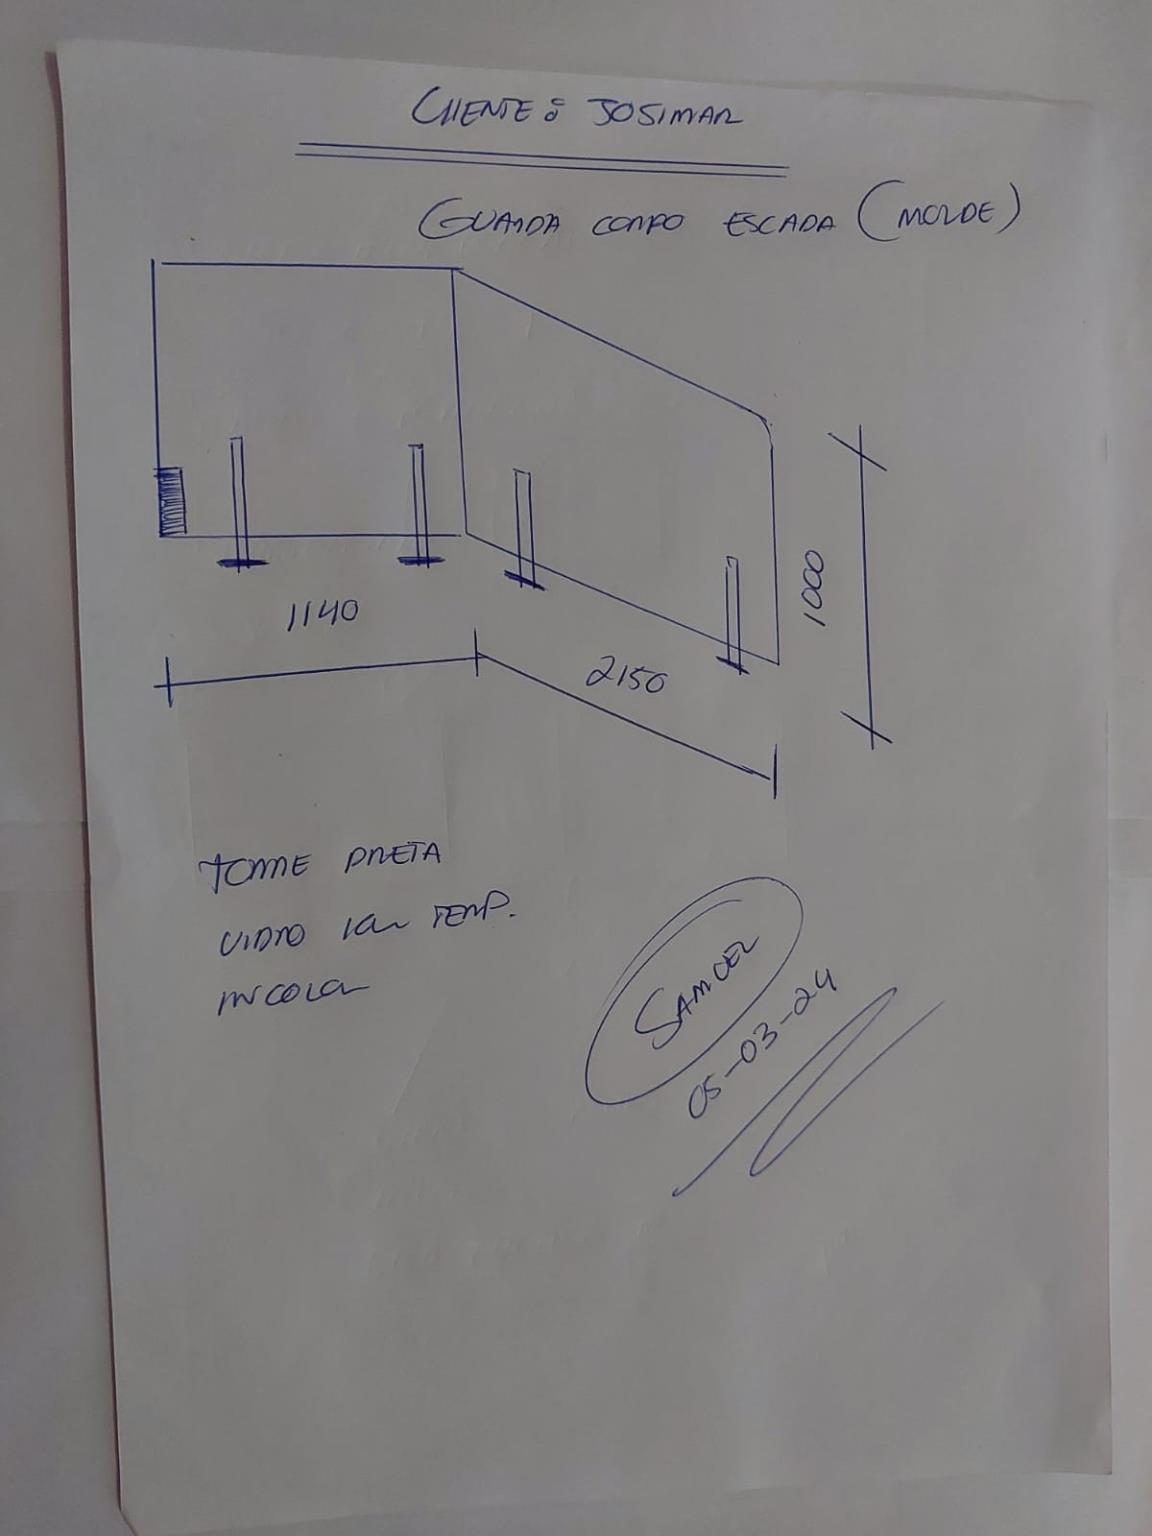 CLIENTE: JOSIMAR
GUARDA CORPO ESCADA (MOLDE)
1000
1140
2150
TORRE PRETA
VIDRO TEMP.
INCOLOR
SAMUEL
05-03-24